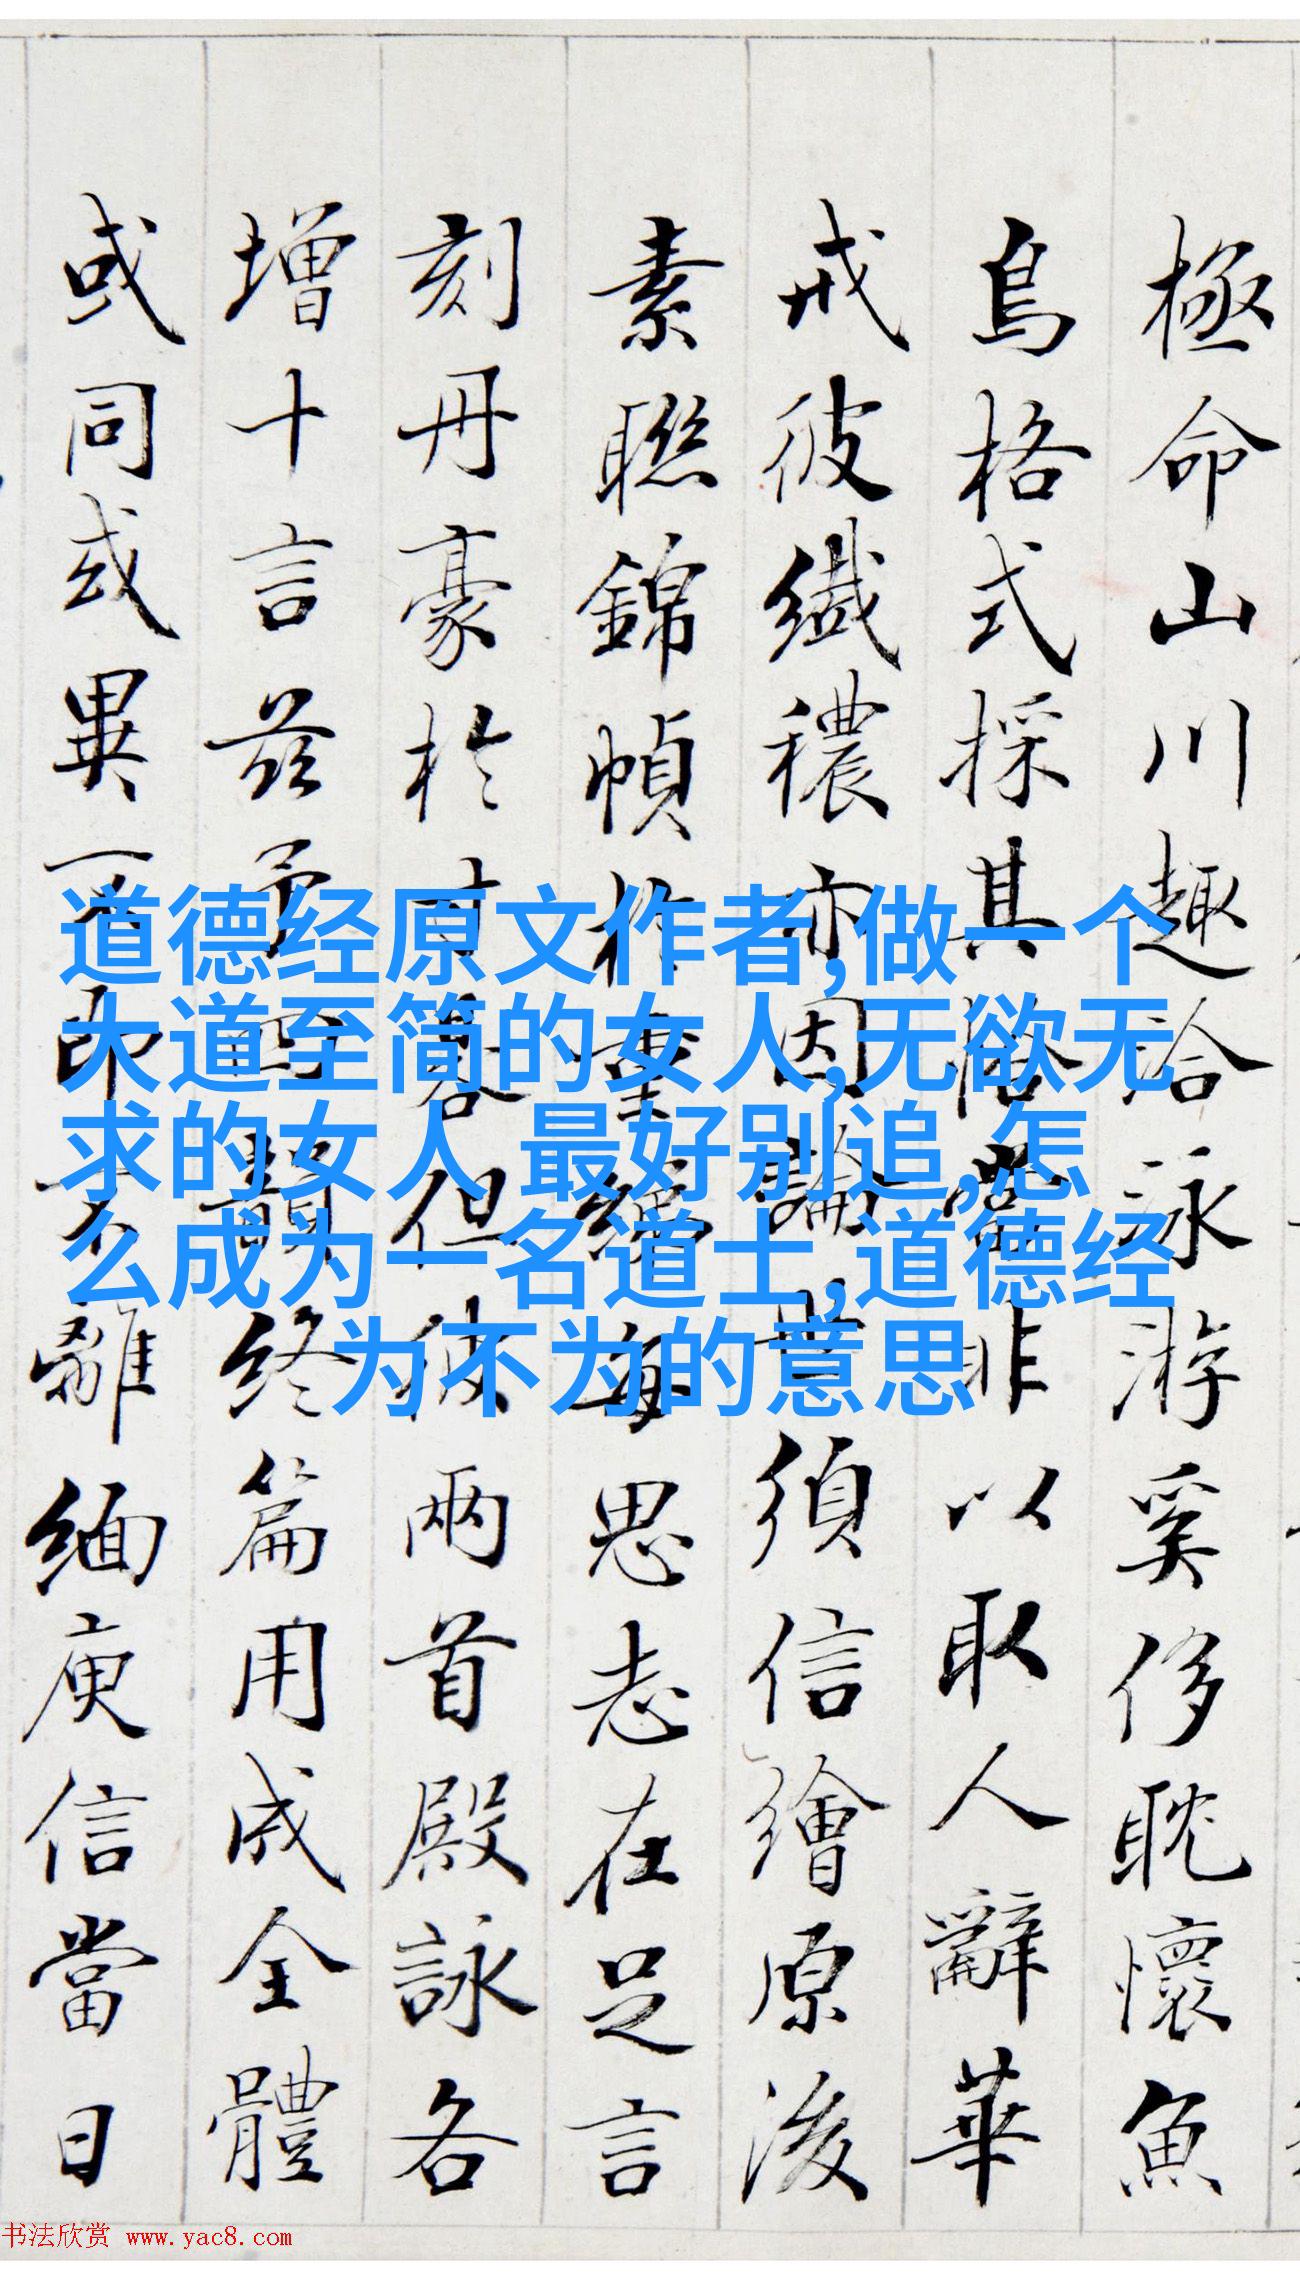 極命山川趣洽詠游奚侈耽懷魚
鳥格式採其
非以取人辭華
戒彼纖穠亦因論
須信繪原後
素聯錦幀於
每思志在足言
刻丹豪於
但
兩首殿詠各
增十言茲予
韻終篇用成全體
或同或異
離緬庾信當日
道德经原文作者,做一个
大道至简的女人,无欲无
求的女人 最好别追,怎
么成为一名道士,道德经
为不为的意思
书法欣赏 www.yac8.com